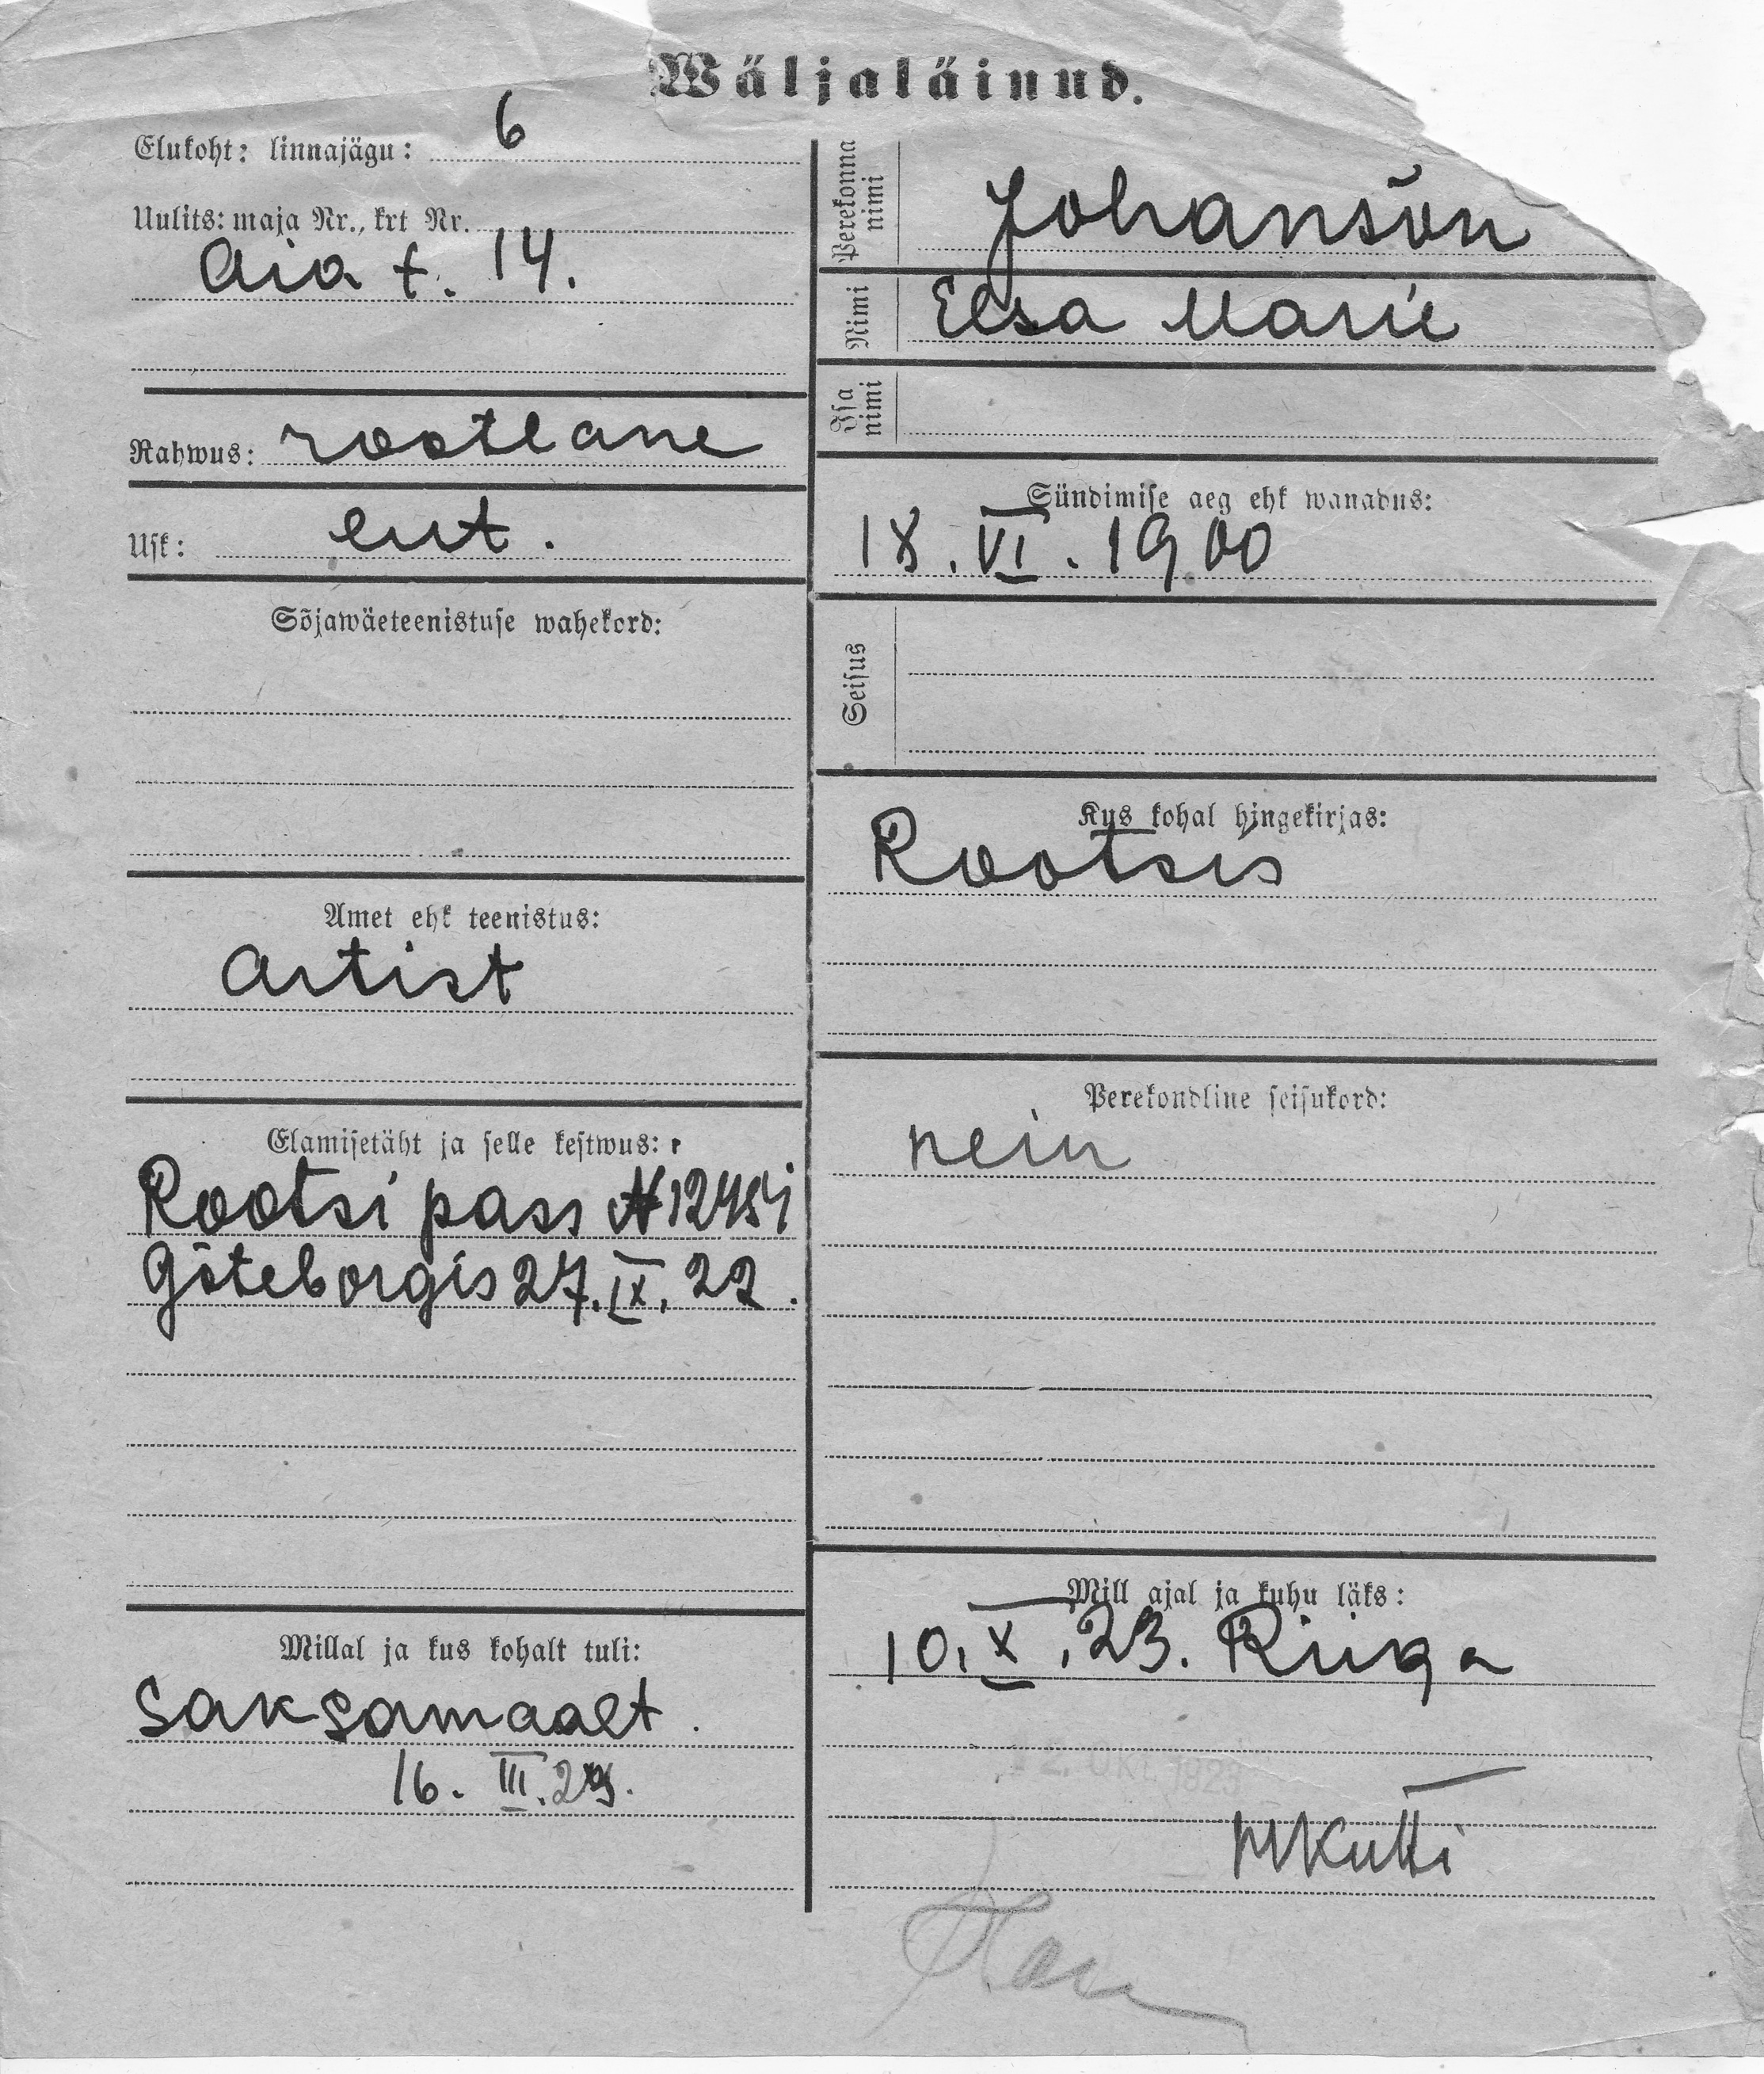 Wäljaläinud.
Elukoht: linnajägu: 6
Uulits: maja Nr., krt Nr.
Aia t. 14.
Rahwus: rootlane
Usk: lut.
Sõjawäeteenistuse wahekord:
Amet ehk teenistus:
Artist
Elamisetäht ja selle kestwus:
Rootsi pass N
Göteborgis 27.IX.22.
Millal ja kus kohalt tuli:
Saksamaalt.
16. III.23.
Perekonna nimi
Johanson
Nimi
Elsa Marie
Isa nimi
Sündimise aeg ehk wanadus:
18.VI.1900
Seisus
Kus kohal hingekirjas:
Rootsis
Perekondline seisukord:
nein
Mill ajal ja kuhu läks:
10.X.23. Riiga
OKT. 1923
MKutti